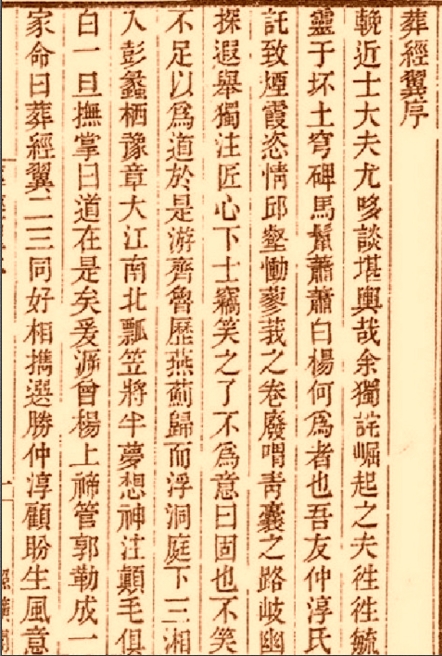 葬經翼序
輓近士大夫尤哆談堪輿哉余獨詫崛起之夫徃徃毓
靈于坏土穹碑馬鬣蕭蕭白楊何爲者也吾友仲淳氏
託致煙霞恣情邱壑慟蓼莪之卷廢喟靑囊之路岐幽
探遐舉獨注匠心下士竊笑之了不爲意曰固也不笑
不足以爲道於是游齊魯歷燕薊歸而浮洞庭下三湘
入彭蠡栖豫章大江南北瓢笠將半夢想神注顚毛俱
白一旦撫掌曰道在是矣爰泝曾楊上禘管郭勒成一
家命曰葬經翼二三同好相擕選勝仲淳顧盼生風意